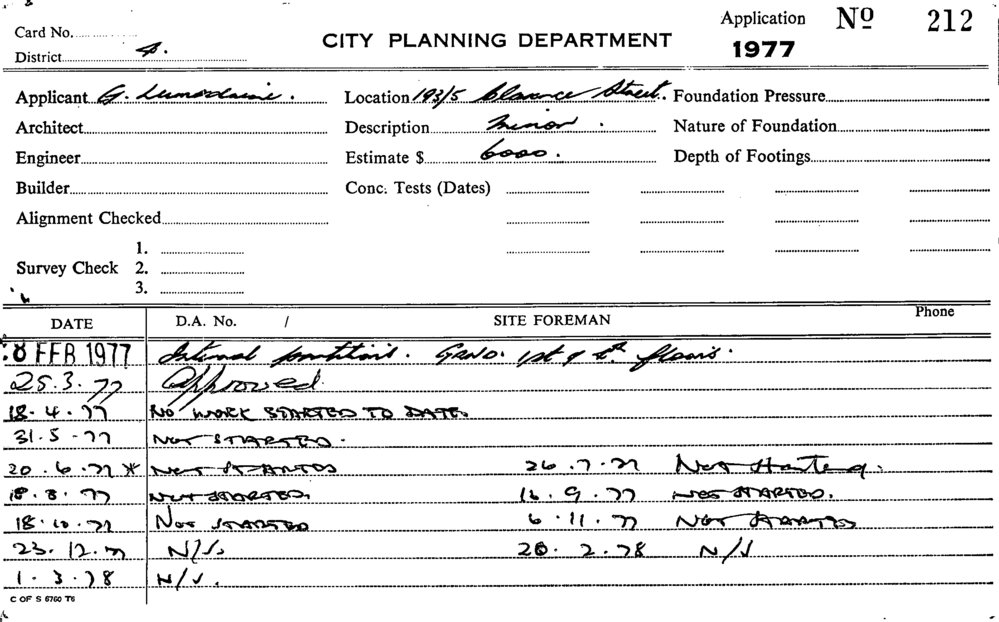 Card No.
Application Nº 212
District 4.
CITY PLANNING DEPARTMENT
1977
Applicant G. Location 193/5 Clarence Street. Foundation Pressure
Architect Description minor. Nature of Foundation
Engineer Estimate $ 6000. Depth of Footings
Builder Conc. Tests (Dates)
Alignment Checked
1.
Survey Check 2.
3.
DATE D.A. No. / SITE FOREMAN Phone
8 FEB 1977 Internal partitions. GRND. 1st & floors.
25.3.77 Approved.
18.4.77 NO WORK STARTED TO DATE.
31.5-77 NOT STARTED.
20.6.77 * NOT STARTED 26.7.77 Not Started.
18.8.77 NOT STARTED. 16.9.77 NOT STARTED.
18.10.77 NOT STARTED 6.11.77 NOT STARTED
23.12.77 N/S. 20.2.78 N/S
1.3.78 N/S.
C OF S 6760 T6